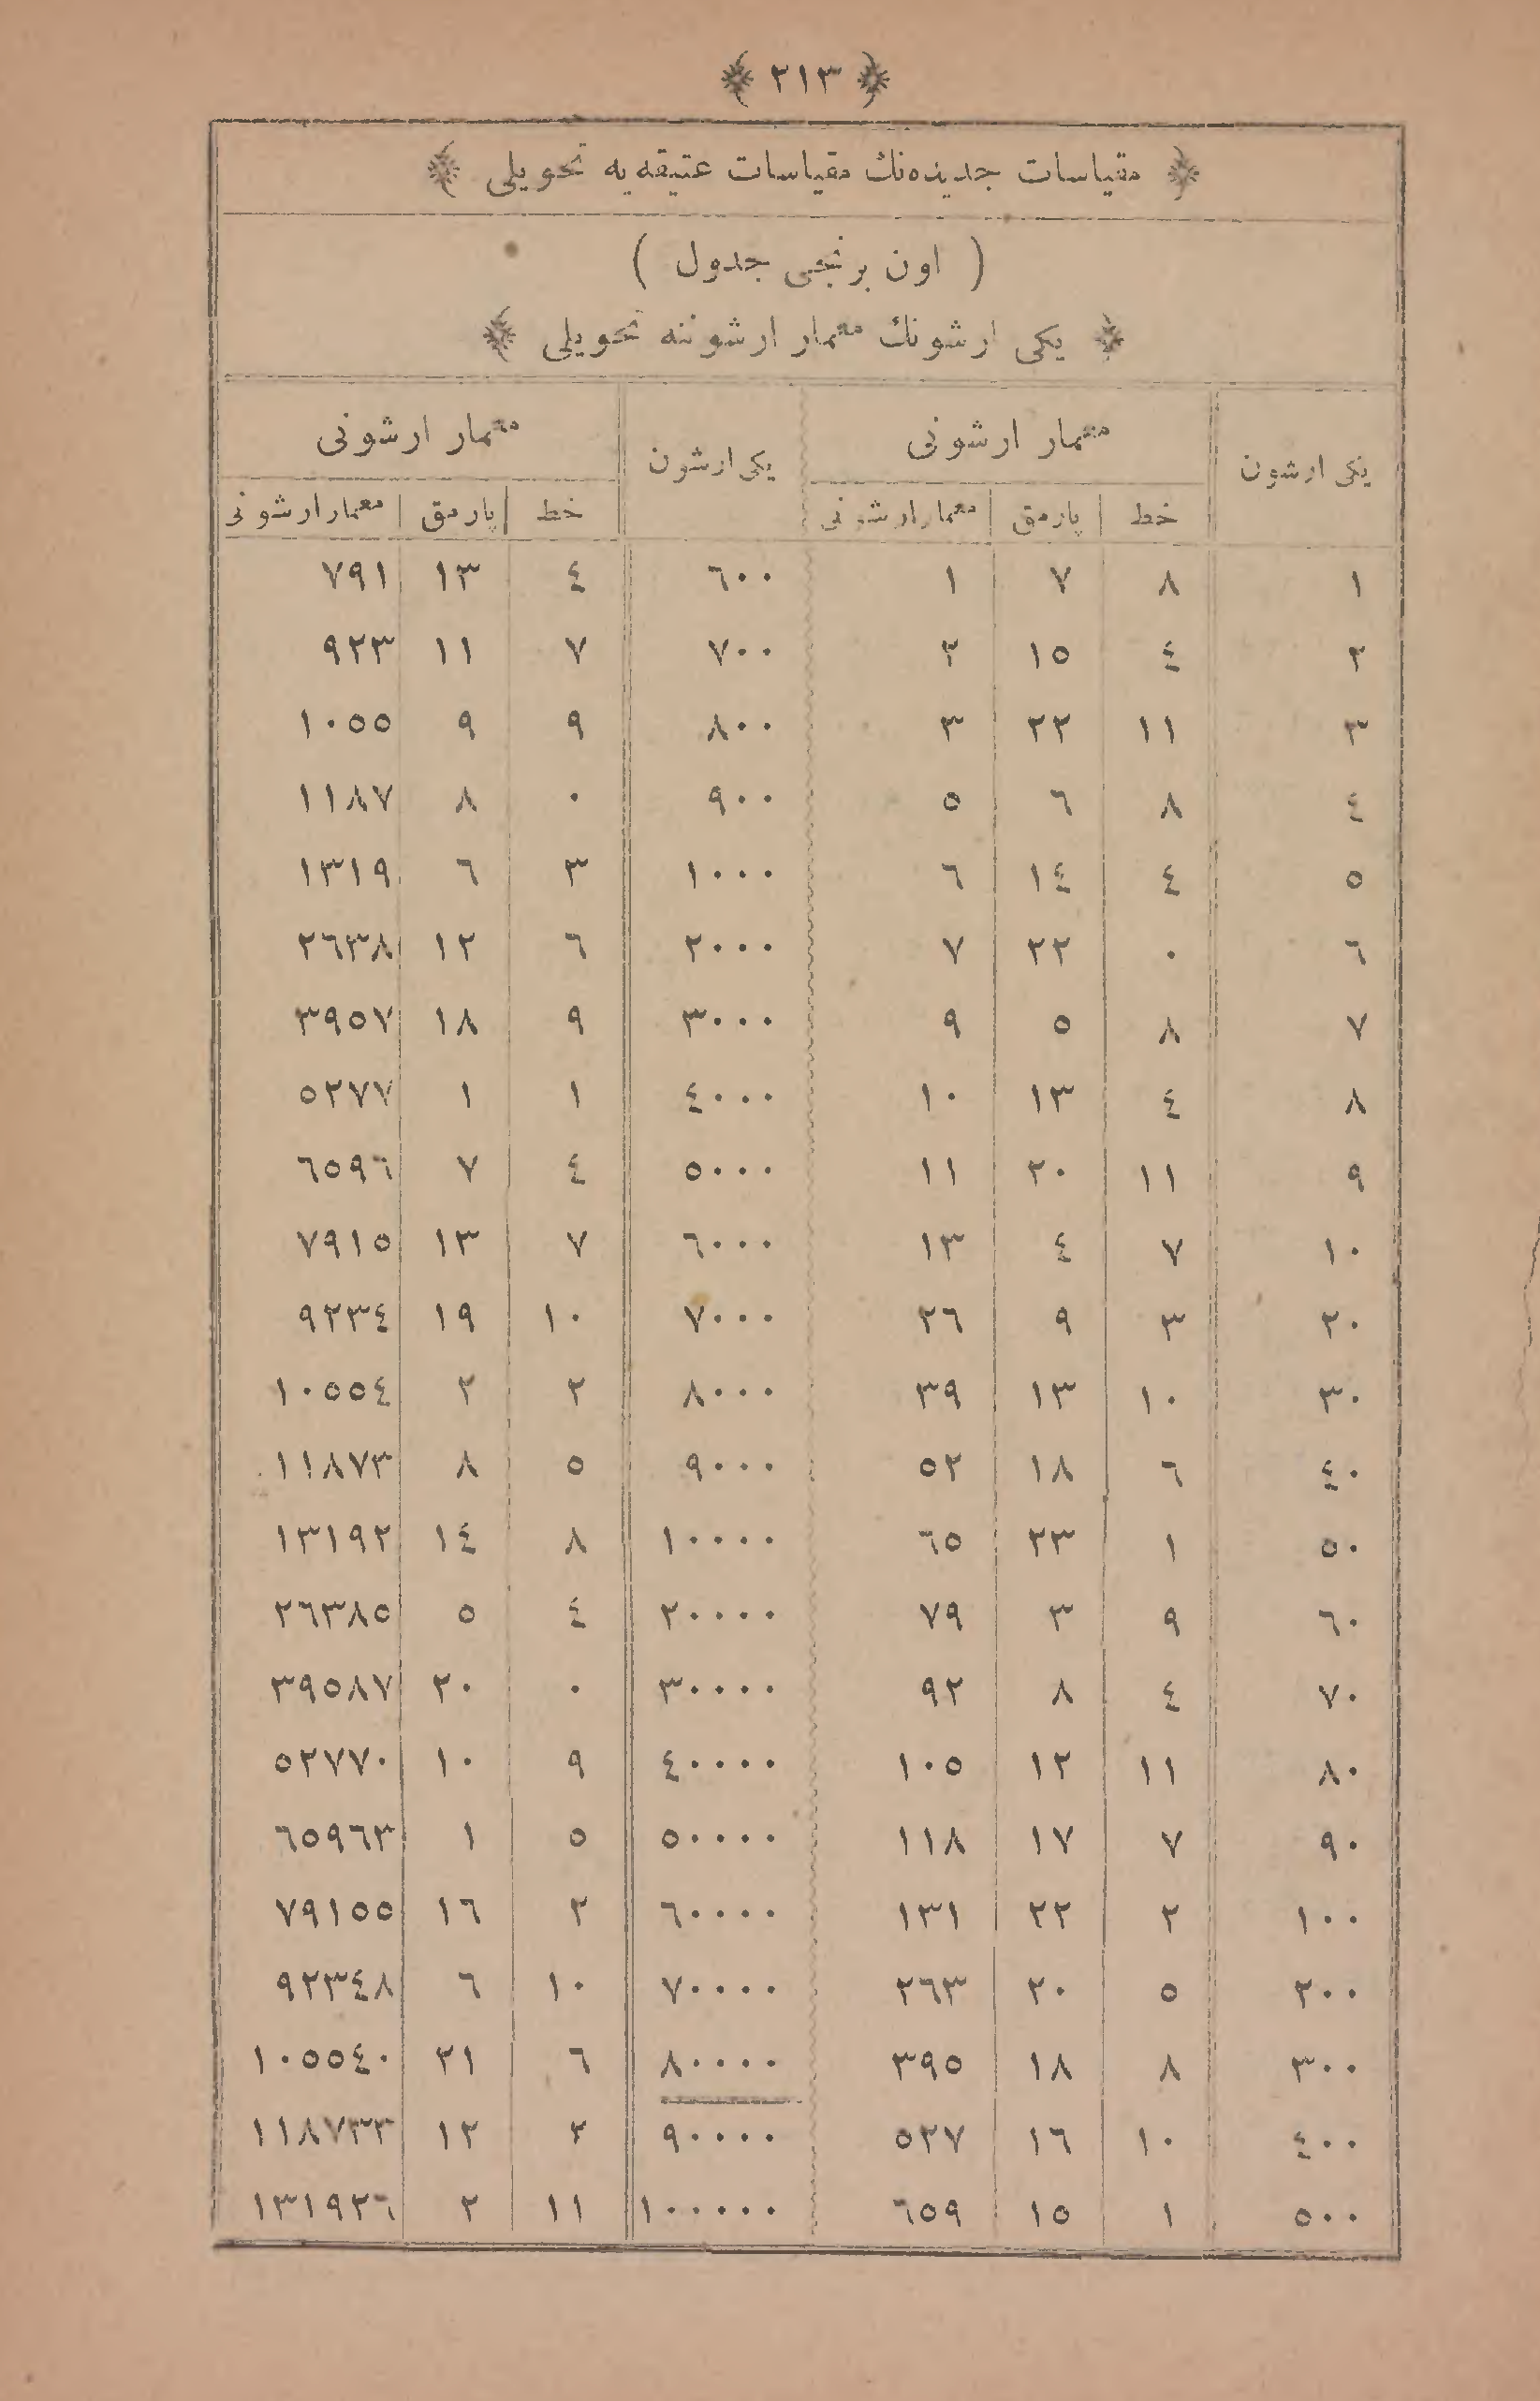 ﴿ ٢١٣ ﴾
﴿ مقیاسات جدیدەنك مقیاسات عتیقەیە تحویلی ﴾
( اون برنجی جدول )
﴿ یكی ارشونك معمار ارشوننە تحویلی ﴾
یكی ارشون معمار ارشونی یكی ارشون معمار ارشونی
خط پارمق معمار ارشونی خط پارمق معمار ارشونی
١ ٨ ٧ ١ ٦٠٠ ٤ ١٣ ٧٩١
٢ ٤ ١٥ ٢ ٧٠٠ ٧ ١١ ٩٢٣
٣ ١١ ٢٢ ٣ ٨٠٠ ٩ ٩ ١٠٥٥
٤ ٨ ٦ ٥ ٩٠٠ ٠ ٨ ١١٨٧
٥ ٤ ١٤ ٦ ١٠٠٠ ٣ ٦ ١٣١٩
٦ ٠ ٢٢ ٧ ٢٠٠٠ ٦ ١٢ ٢٦٣٨
٧ ٨ ٥ ٩ ٣٠٠٠ ٩ ١٨ ٣٩٥٧
٨ ٤ ١٣ ١٠ ٤٠٠٠ ١ ١ ٥٢٧٧
٩ ١١ ٢٠ ١١ ٥٠٠٠ ٤ ٧ ٦٥٩٦
١٠ ٧ ٤ ١٣ ٦٠٠٠ ٧ ١٣ ٧٩١٥
٢٠ ٣ ٩ ٢٦ ٧٠٠٠ ١٠ ١٩ ٩٢٣٤
٣٠ ١٠ ١٣ ٣٩ ٨٠٠٠ ٢ ٢ ١٠٥٥٤
٤٠ ٦ ١٨ ٥٢ ٩٠٠٠ ٥ ٨ ١١٨٧٣
٥٠ ١ ٢٣ ٦٥ ١٠٠٠٠ ٨ ١٤ ١٣١٩٢
٦٠ ٩ ٣ ٧٩ ٢٠٠٠٠ ٤ ٥ ٢٦٣٨٥
٧٠ ٤ ٨ ٩٢ ٣٠٠٠٠ ٠ ٢٠ ٣٩٥٨٧
٨٠ ١١ ١٢ ١٠٥ ٤٠٠٠٠ ٩ ١٠ ٥٢٧٧٠
٩٠ ٧ ١٧ ١١٨ ٥٠٠٠٠ ٥ ١ ٦٥٩٦٣
١٠٠ ٢ ٢٢ ١٣١ ٦٠٠٠٠ ٢ ١٦ ٧٩١٥٥
٢٠٠ ٥ ٢٠ ٢٦٣ ٧٠٠٠٠ ١٠ ٦ ٩٢٣٤٨
٣٠٠ ٨ ١٨ ٣٩٥ ٨٠٠٠٠ ٦ ٢١ ١٠٥٥٤٠
٤٠٠ ١٠ ١٦ ٥٢٧ ٩٠٠٠٠ ٢ ١٢ ١١٨٧٣٣
٥٠٠ ١ ١٥ ٦٥٩ ١٠٠٠٠٠ ١١ ٢ ١٣١٩٢٦